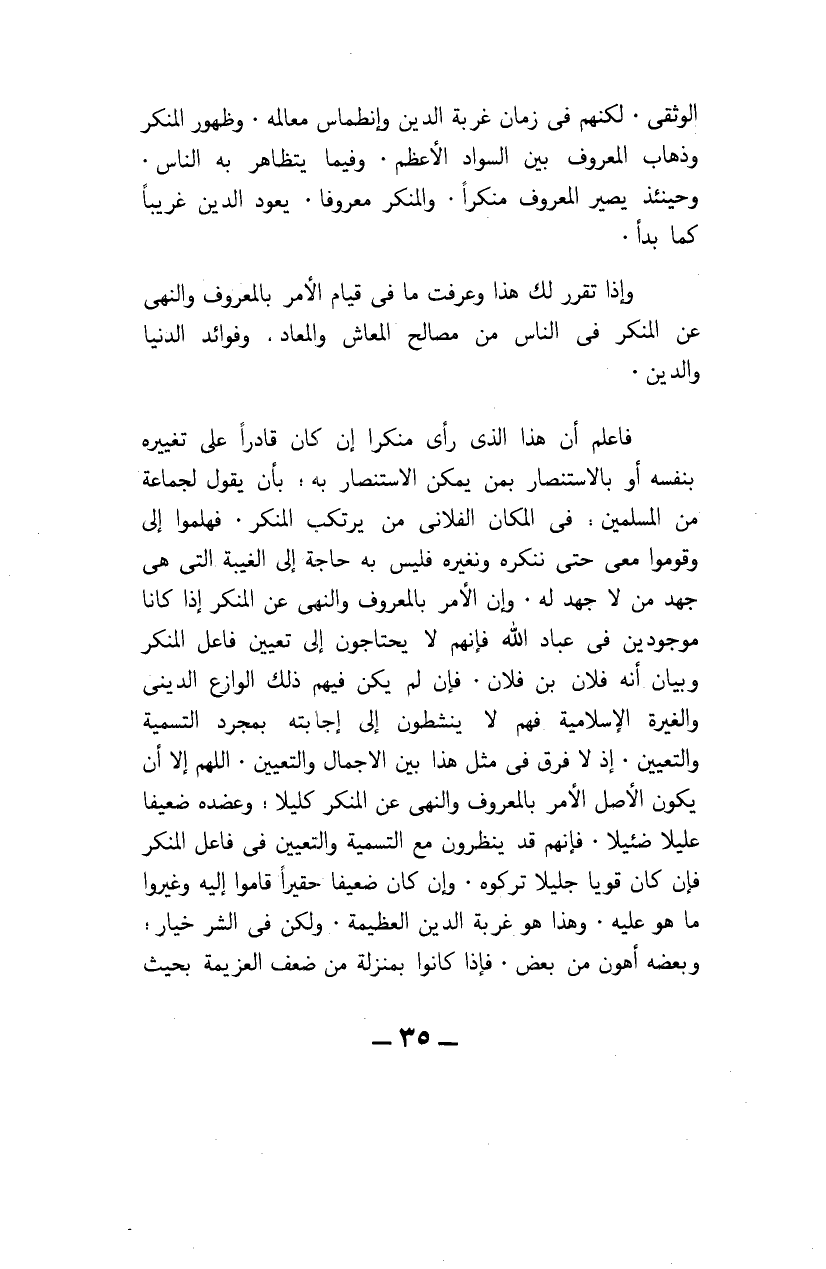 الوثقى ٠ لكنهم فى زمان غربة الدين وإنطماس معالمه ٠ وظهور المنكر
وذهاب المعروف بين السواد الأعظم ٠ وفيما يتظاهر به الناس ٠
وحينئذ يصير المعروف منكراً ٠ والمنكر معروفا ٠ يعود الدين غريباً
كما بدأ ٠
وإذا تقرر لك هذا وعرفت ما فى قيام الأمر بالمعروف والنهى
عن المنكر فى الناس من مصالح المعاش والمعاد . وفوائد الدنيا
والدين ٠
فاعلم أن هذا الذى رأى منكرا إن كان قادراً على تغييره
بنفسه أو بالاستنصار بمن يمكن الاستنصار به ؛ بأن يقول لجماعة
من المسلمين : فى المكان الفلانى من يرتكب المنكر ٠ فهلموا إلى
وقوموا معى حتى ننكره ونغيره فليس به حاجة إلى الغيبة التى هى
جهد من لا جهد له ٠ وإن الأمر بالمعروف والنهى عن المنكر إذا كانا
موجودين فى عباد الله فإنهم لا يحتاجون إلى تعيين فاعل المنكر
وبيان أنه فلان بن فلان ٠ فإن لم يكن فيهم ذلك الوازع الدينى
والغيرة الإسلامية فهم لا ينشطون إلى إجابته بمجرد التسمية
والتعيين ٠ إذ لا فرق فى مثل هذا بين الاجمال والتعيين ٠ اللهم إلا أن
يكون الأصل الأمر بالمعروف والنهى عن المنكر كليلا ؛ وعضده ضعيفا
عليلا ضئيلا ٠ فإنهم قد ينظرون مع التسمية والتعيين فى فاعل المنكر
فإن كان قويا جليلا تركوه ٠ وإن كان ضعيفا حقيراً قاموا إليه وغيروا
ما هو عليه ٠ وهذا هو غربة الدين العظيمة ٠ ولكن فى الشر خيار ؛
وبعضه أهون من بعض ٠ فإذا كانوا بمنزلة من ضعف العزيمة بحيث
— ٣٥ —